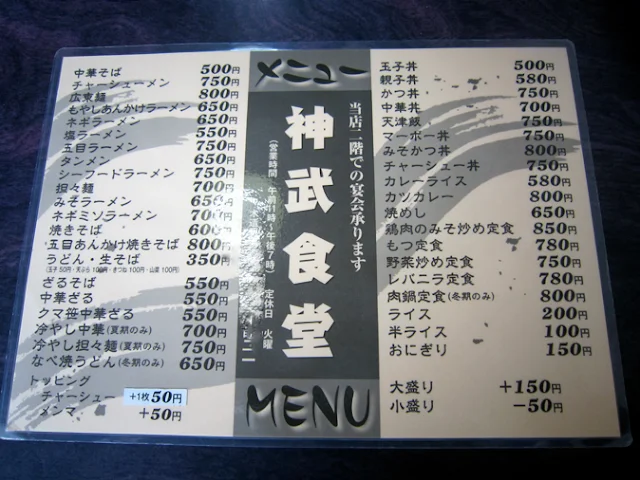 中華そば 500円
チャーシューメン 750円
広東麺 800円
もやしあんかけラーメン 650円
ネギラーメン 650円
塩ラーメン 550円
五目ラーメン 750円
タンメン 650円
シーフードラーメン 750円
担々麺 700円
みそラーメン 650円
ネギミソラーメン 700円
焼きそば 600円
五目あんかけ焼きそば 800円
うどん・生そば 350円
(玉子50円・天ぷら100円・きつね100円・山菜100円)
ざるそば 550円
中華ざる 550円
クマ笹中華ざる 550円
冷やし中華(夏期のみ) 700円
冷やし担々麺(夏期のみ) 750円
なべ焼うどん(冬期のみ) 650円
トッピング
チャーシュー +1枚50円
メンマ +50円
メニュー
当店二階での宴会承ります
神武食堂
(営業時間 午前11時〜午後7時) 定休日 火曜
MENU
玉子丼 500円
親子丼 580円
かつ丼 750円
中華丼 700円
天津飯 750円
マーボー丼 750円
みそかつ丼 800円
チャーシュー丼 750円
カレーライス 580円
カツカレー 800円
焼めし 650円
鶏肉のみそ炒め定食 850円
もつ定食 780円
野菜炒め定食 750円
レバニラ定食 780円
肉鍋定食(冬期のみ) 800円
ライス 200円
半ライス 100円
おにぎり 150円
大盛り +150円
小盛り −50円